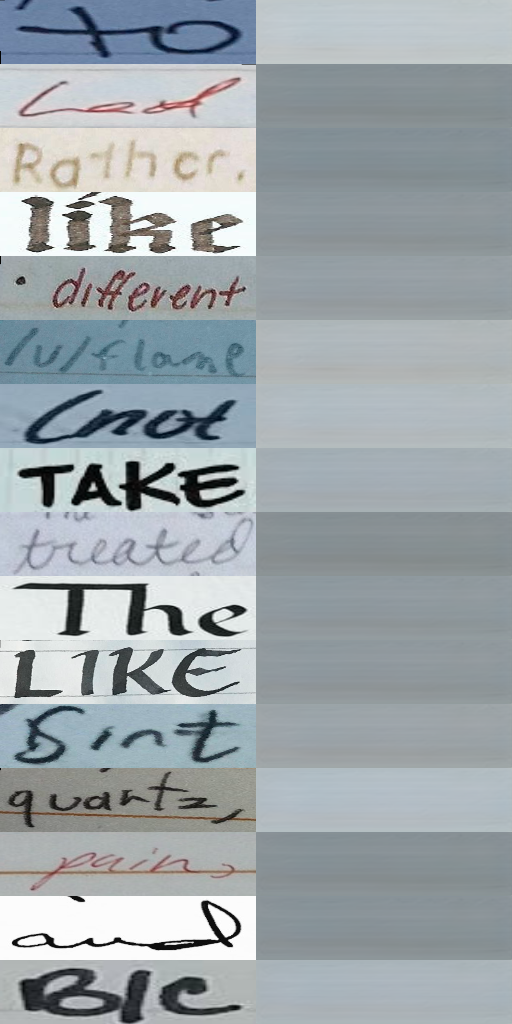 to
Lead
Rather.
like
• different
/v/flame
(not
TAKE
treated
The
LIKE
Sint
quartz,
pain,
and
B/c